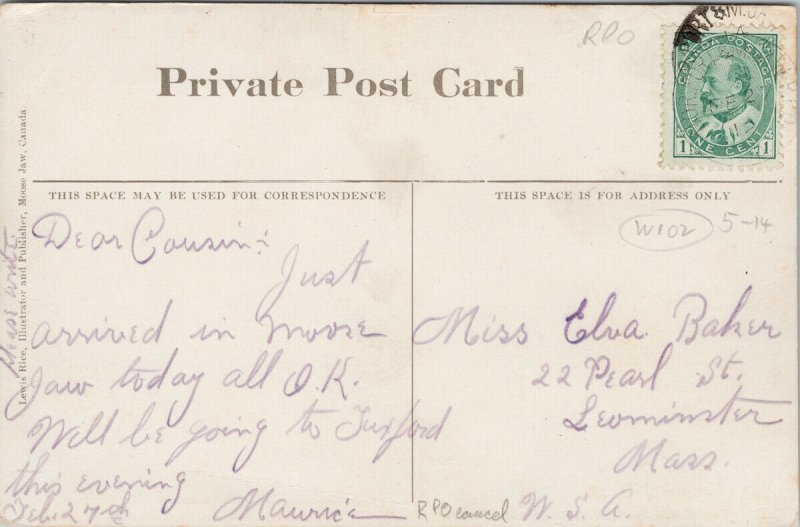 RPO
Private Post Card
CANADA POSTAGE
1 ONE CENT 1
PORT & M. JAW
THIS SPACE MAY BE USED FOR CORRESPONDENCE
THIS SPACE IS FOR ADDRESS ONLY
W102 5-14
Dear Cousin:
Just
arrived in Moose
Jaw today all O.K.
Will be going to Tuxford
this evening
Feb. 27th Maurice
Please write.
Lewis Rice, Illustrator and Publisher, Moose Jaw, Canada.
Miss Elva Baker
22 Pearl St.
Leominster
Mass.
U.S.A.
RPO cancel